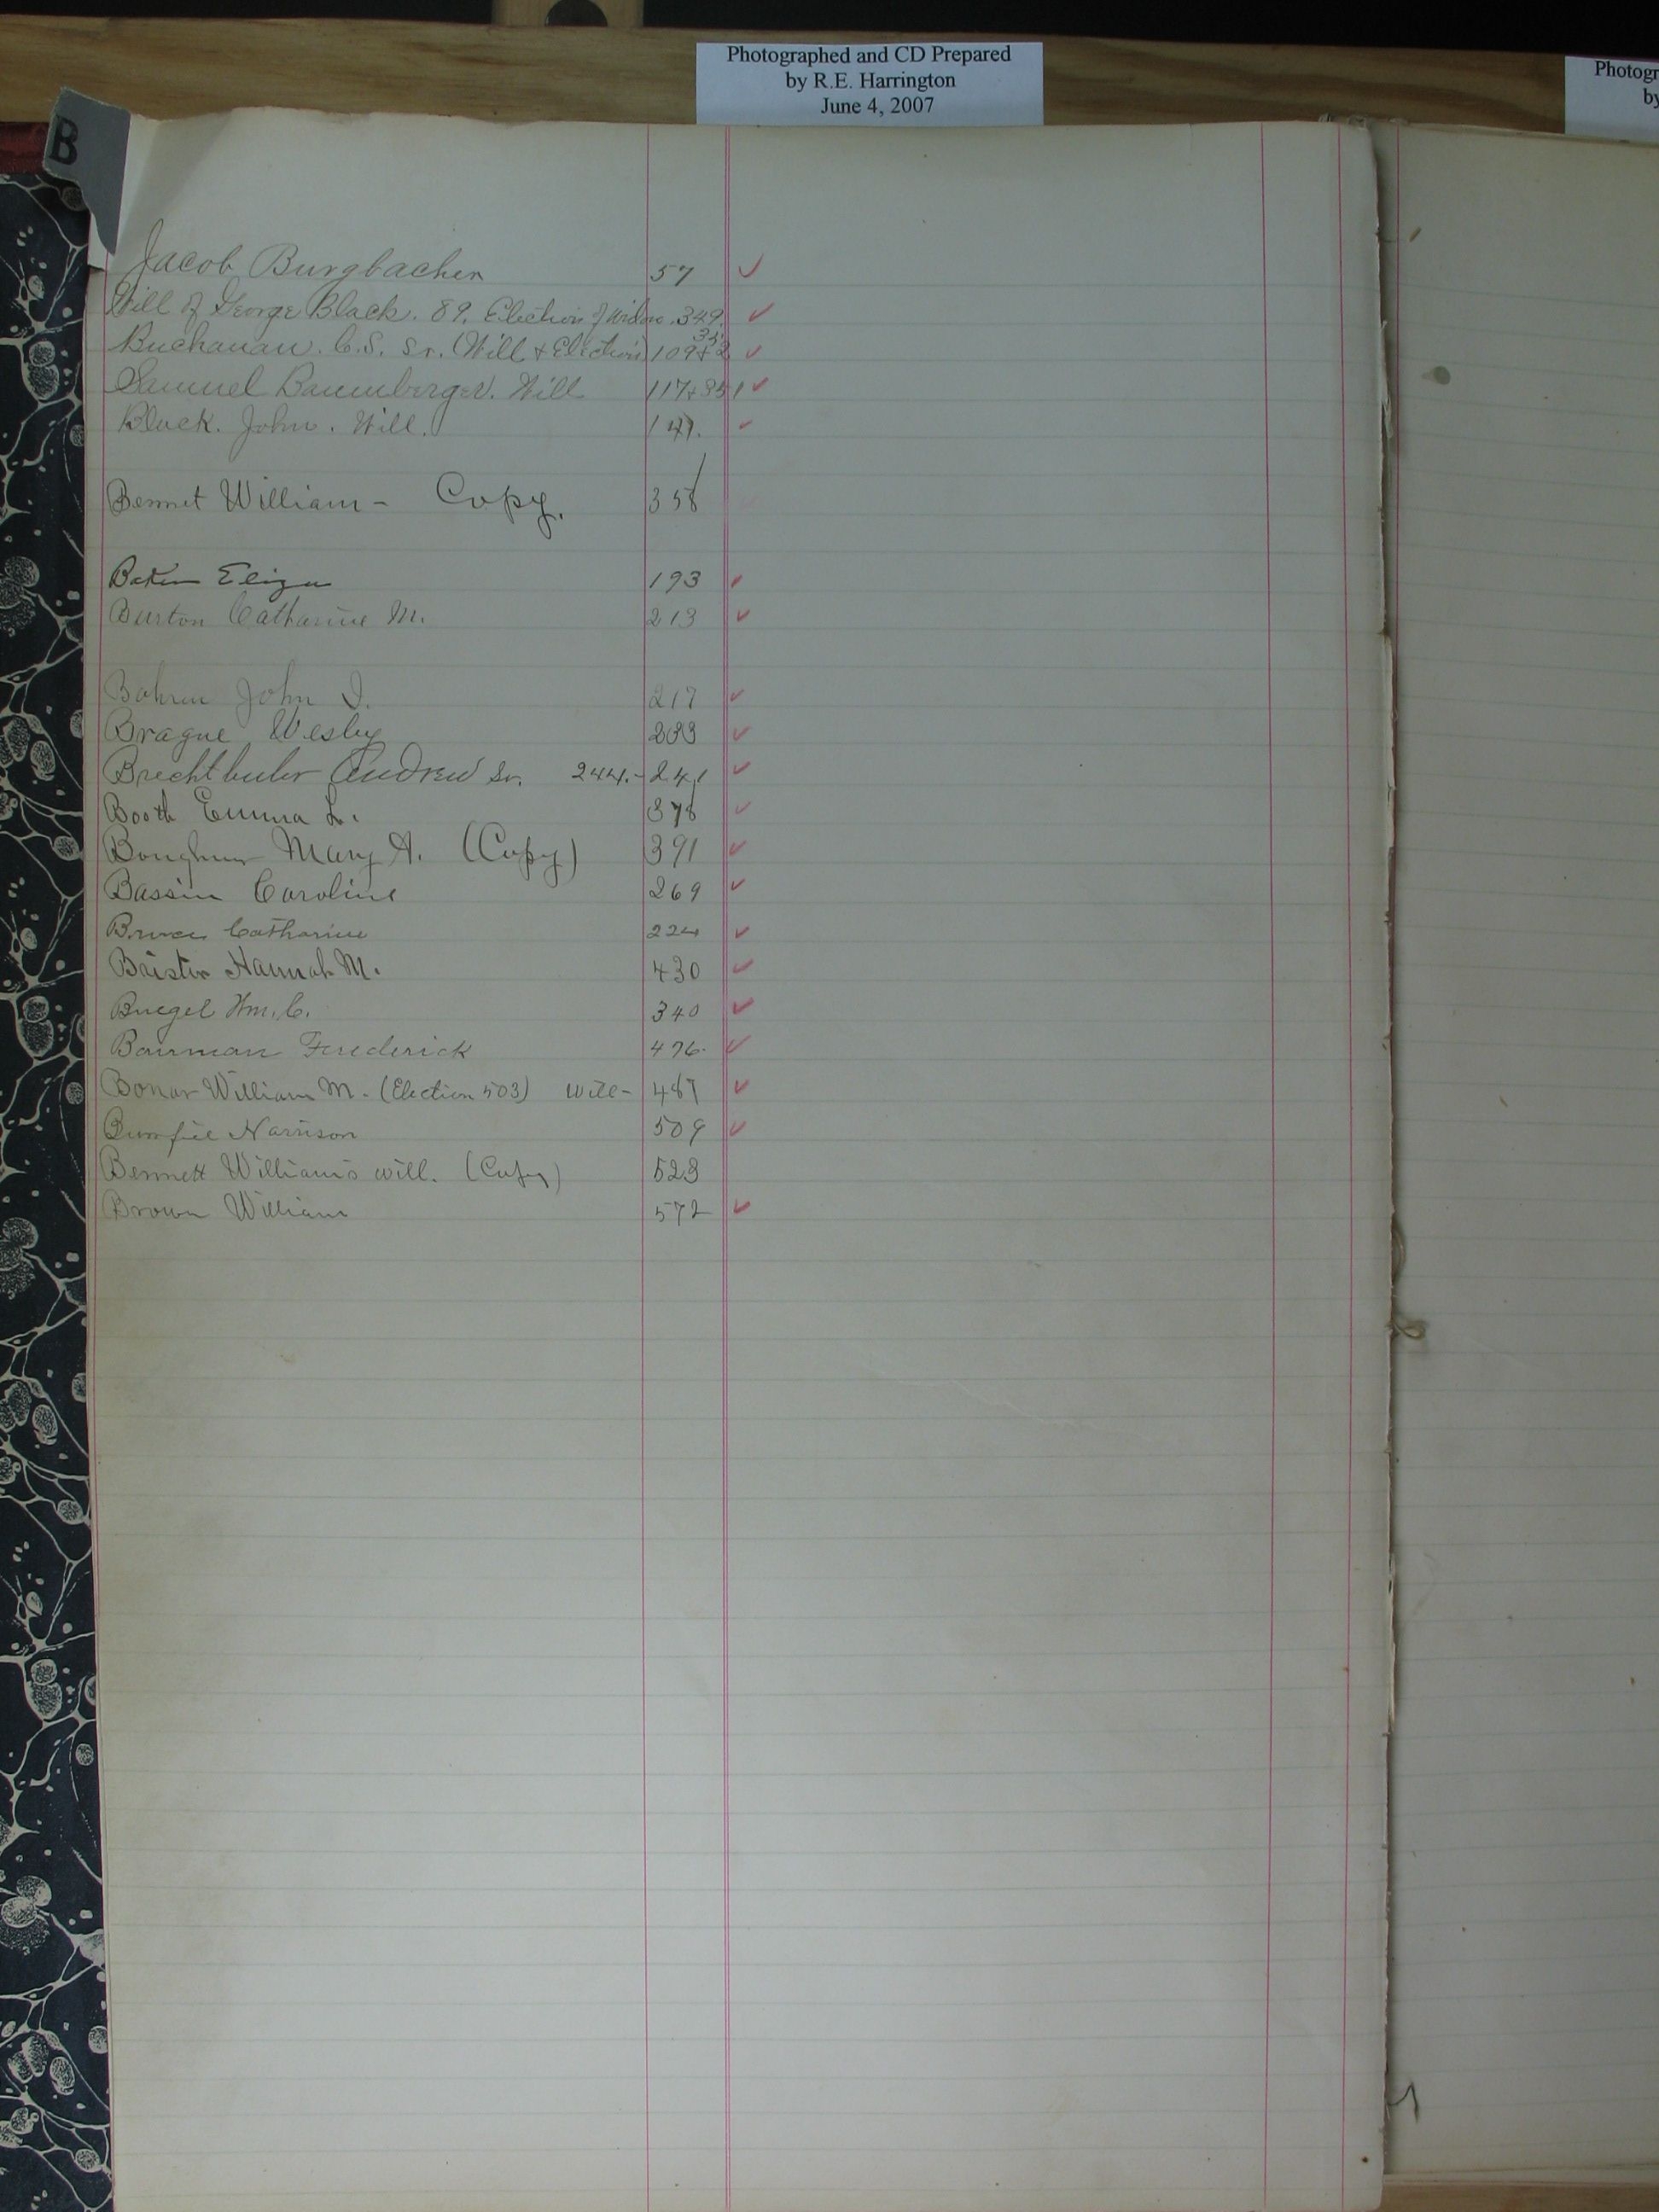 Photographed and CD Prepared
by R.E. Harrington
June 4, 2007
Photogr
by
B
Jacob Burgbacher 57 ✓
Will of George Black. 89. Election of Widow. 349. ✓
Buchanan. C.S. Sr. (Will & Election) 109 & 352 ✓
Samuel Baumberger. Will 117 & 351 ✓
Black. John. Will. ✓
Bennet William - Copy. 358
Baker Eliza 193 ✓
Burton Catharine M. 213 ✓
Bohren John I. 217 ✓
Brague Wesley 233 ✓
Brechtbuler Andrew Sr. 244.- 241 ✓
Booth Emma L. 378 ✓
Mary A. (Copy) 391 ✓
Bassin Caroline 269 ✓
Bruce Catharine 224 ✓
Baister Hannah M. 430 ✓
Buegel Wm. C. 340 ✓
Bauman Frederick 476. ✓
Bonar William M. - (Election 503) Will - 487 ✓
Bumfil Harrison 509 ✓
Bennett William's will. (Copy) 523
Brown William 572 ✓